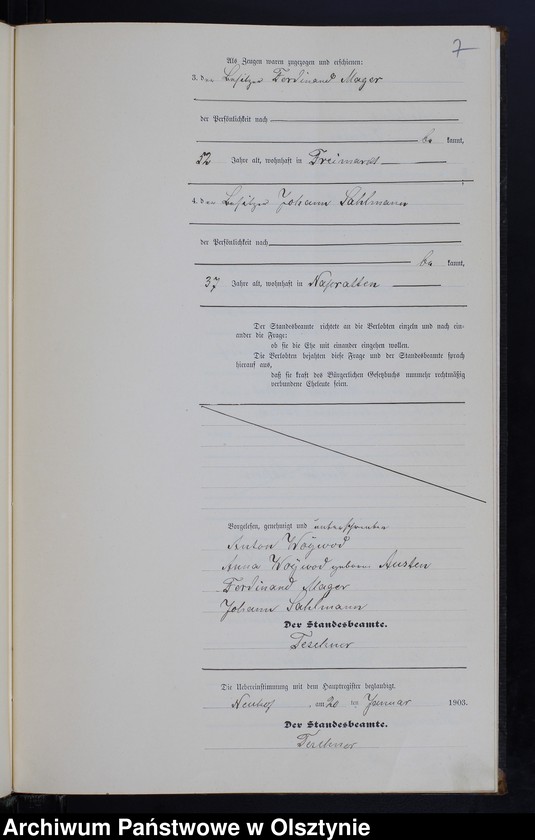 7
Als Zeugen waren zugezogen und erschienen:
3. der Besitzer Ferdinand Mager
der Persönlichkeit nach
be kannt,
52 Jahre alt, wohnhaft in Freimarkt
4. der Besitzer Johann Sahlmann
der Persönlichkeit nach
be kannt,
37 Jahre alt, wohnhaft in Napratten
Der Standesbeamte richtete an die Verlobten einzeln und nach ein-
ander die Frage:
ob sie die Ehe mit einander eingehen wollen.
Die Verlobten bejahten diese Frage und der Standesbeamte sprach
hierauf aus,
daß sie kraft des Bürgerlichen Gesetzbuchs nunmehr rechtmäßig
verbundene Eheleute seien.
Vorgelesen, genehmigt und unterschrieben
Anton Woÿwod
Anna Woÿwod geborene Austen
Ferdinand Mager
Johann Sahlmann
Der Standesbeamte.
Teschner
Die Uebereinstimmung mit dem Hauptregister beglaubigt.
Neuhof, am 20 ten Januar 1903.
Der Standesbeamte.
Teschner
Archiwum Państwowe w Olsztynie